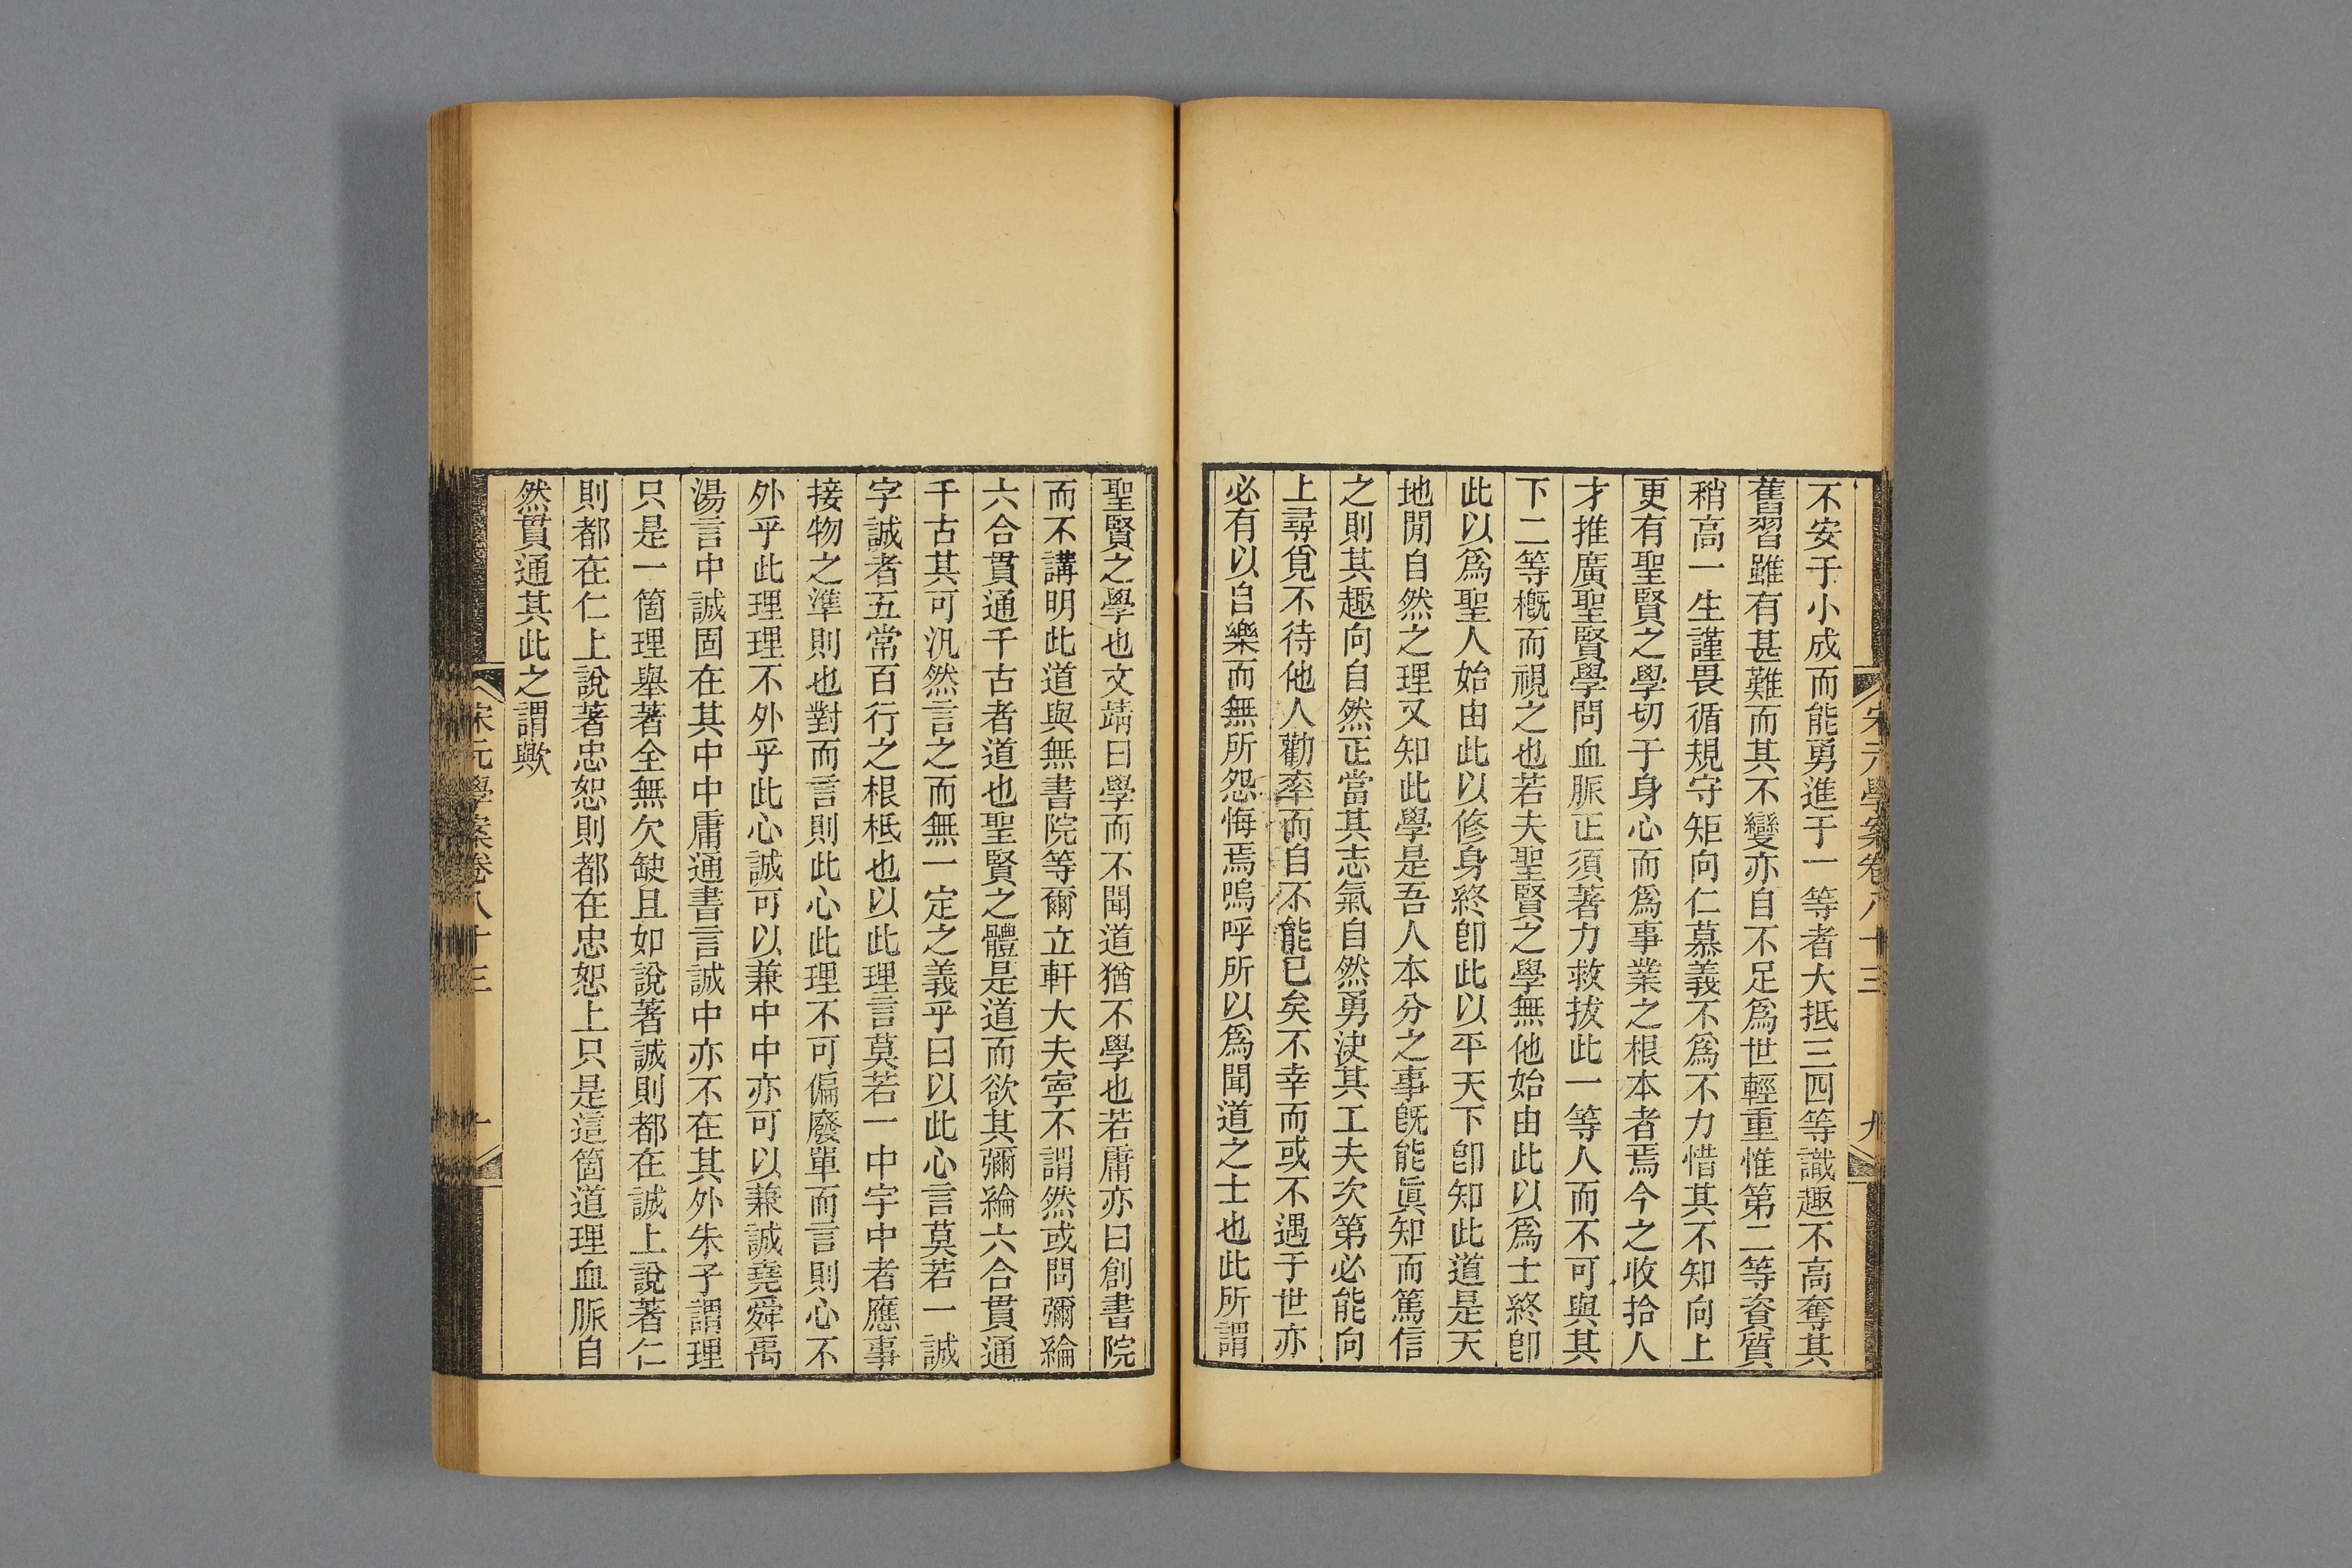 宋元學案卷八十三
九
不安于小成而能勇進于一等者大抵三四等識趣不高奪其
舊習雖有甚難而其不變亦自不足爲世輕重惟第二等資質
稍高一生謹畏循規守矩向仁慕義不爲不力惜其不知向上
更有聖賢之學切于身心而爲事業之根本者焉今之收拾人
才推廣聖賢學問血脈正須著力救拔此一等人而不可與其
下二等槪而視之也若夫聖賢之學無他始由此以爲士終卽
此以爲聖人始由此以修身終卽此以平天下卽知此道是天
地閒自然之理又知此學是吾人本分之事旣能眞知而篤信
之則其趣向自然正當其志氣自然勇決其工夫次第必能向
上尋覓不待他人勸率而自不能已矣不幸而或不遇于世亦
必有以自樂而無所怨悔焉嗚呼所以爲聞道之士也此所謂
聖賢之學也文靖曰學而不聞道猶不學也若庸亦曰創書院
而不講明此道與無書院等爾立軒大夫寧不謂然或問彌綸
六合貫通千古者道也聖賢之體是道而欲其彌綸六合貫通
千古其可汎然言之而無一定之義乎曰以此心言莫若一誠
字誠者五常百行之根柢也以此理言莫若一中字中者應事
接物之準則也對而言則此心此理不可偏廢單而言則心不
外乎此理理不外乎此心誠可以兼中中亦可以兼誠堯舜禹
湯言中誠固在其中中庸通書言誠中亦不在其外朱子謂理
只是一箇理舉著全無欠缺且如說著誠則都在誠上說著仁
則都在仁上說著忠恕則都在忠恕上只是這箇道理血脈自
然貫通其此之謂歟
宋元學案卷八十三
十